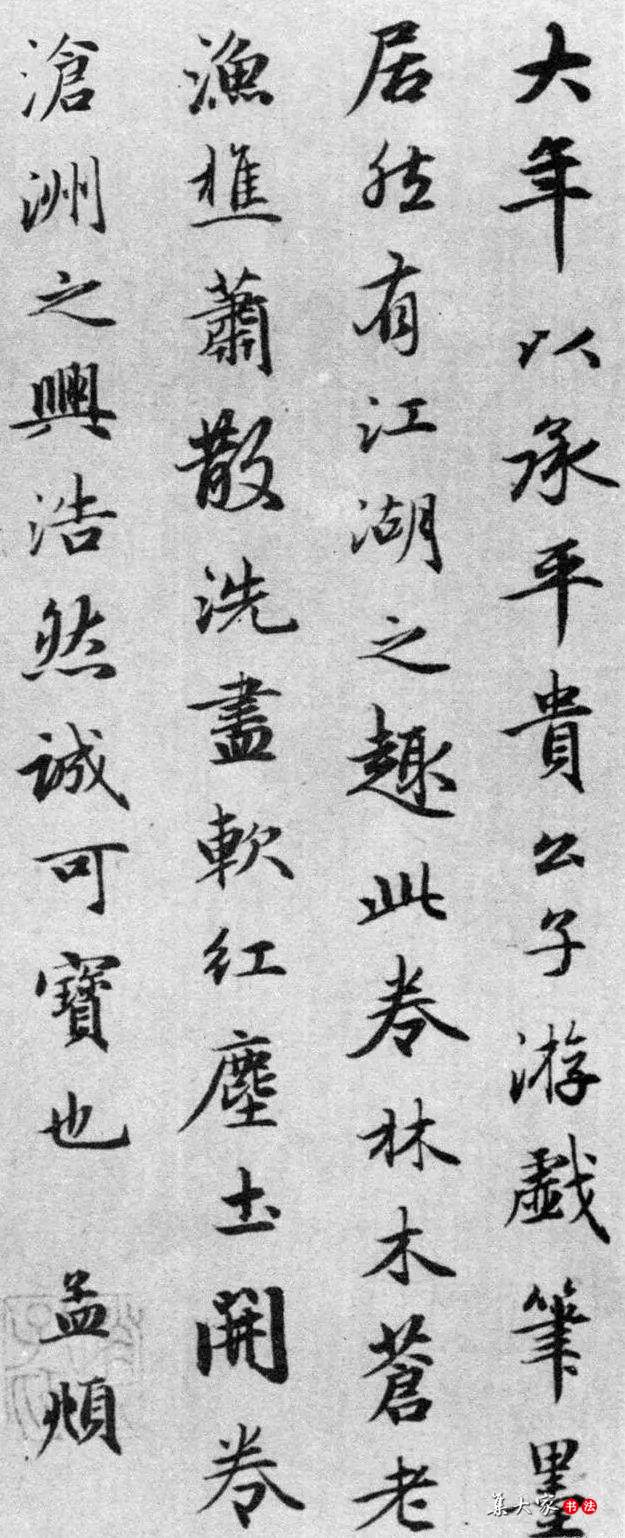 大年以承平貴公子游戲筆墨
居然有江湖之趣此卷林木蒼老
漁樵蕭散洗盡軟紅塵土開卷
滄洲之興浩然誠可寶也 孟頫
集大家书法